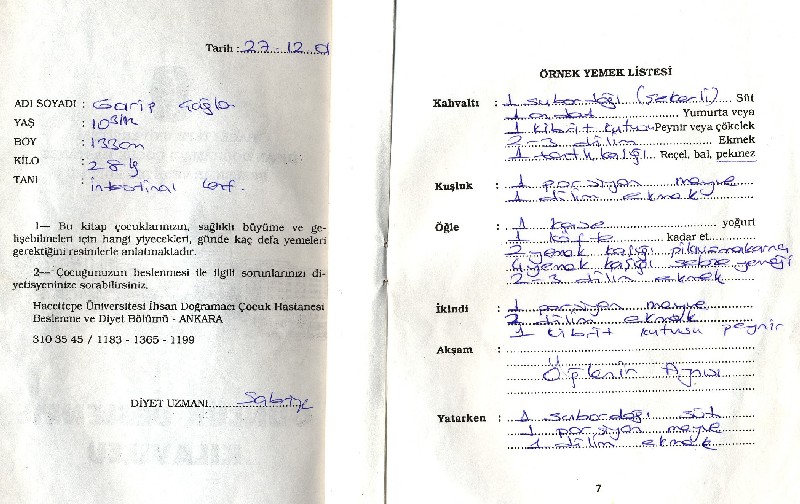 Tarih : 27-12
ADI SOYADI : Garip Çağla
YAŞ : 10 3/12
BOY : 133 cm
KİLO : 28 kg
TANI : intestinal
1— Bu kitap çocuklarınızın, sağlıklı büyüme ve ge-
lişebilmeleri için hangi yiyecekleri, günde kaç defa yemeleri
gerektiğini resimlerle anlatmaktadır.
2— Çocuğunuzun beslenmesi ile ilgili sorunlarınızı di-
yetisyeninize sorabilirsiniz.
Hacettepe Üniversitesi İhsan Doğramacı Çocuk Hastanesi
Beslenme ve Diyet Bölümü - ANKARA
310 35 45 / 1183 - 1365 - 1199
DİYET UZMANI
ÖRNEK YEMEK LİSTESİ
Kahvaltı : 1 su bardağı (şekerli) Süt
1 adet Yumurta veya
1 kibrit kutusu Peynir veya çökelek
2-3 dilim Ekmek
1 tatlı kaşığı Reçel, bal, pekmez
Kuşluk : 1 porsiyon meyve
1 dilim ekmek
Öğle : 1 kase yoğurt
1 köfte kadar et
2 yemek kaşığı pilav makarna
4 yemek kaşığı sebze yemeği
2-3 dilim ekmek
İkindi : 1 porsiyon meyve
2 dilim ekmek
1 kibrit kutusu peynir
Akşam :
Öğlenin Aynısı
Yatarken : 1 su bardağı süt
1 porsiyon meyve
1 dilim ekmek
7